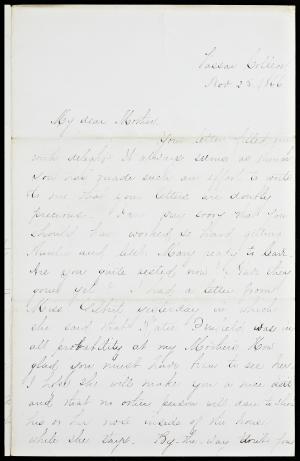 Vassar College
Nov 25, 1866
My dear Mother,
Your letter filled me
with delight. It always seems as though
you had made such an effort to write
to me that your letters are doubly
precious. I am very sorry that you
should have worked so hard getting
Auntie and Mary ready to leave.
Are you quite rested now? Take
yet. I had a letter from
Miss yesterday in which
she said that Katie was in
all probability at my Mother's. How
glad you must have been to see her.
I hope she will make you a nice visit
and that no other person will dare to show
his or her nose inside of the house
while she stays. By-the-way don't you